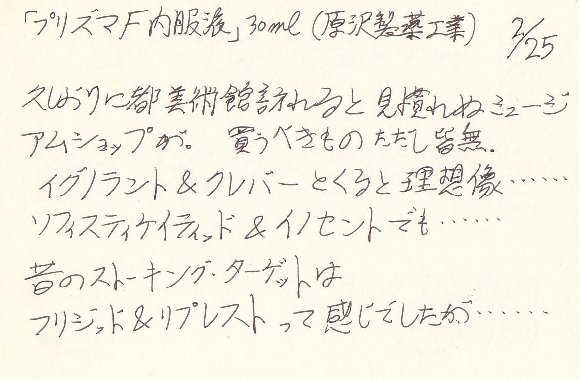 「プリズマF内服液」30ml (原沢製薬工業) 2/25
久しぶりに都美術館訪れると見慣れぬミュージ
アムショップが。買うべきものただし皆無.
イグノラント&クレバーとくると理想像……
ソフィスティケイティッド&イノセントでも……
昔のストーキング・ターゲットは
フリジッド&リプレストって感じでしたが……